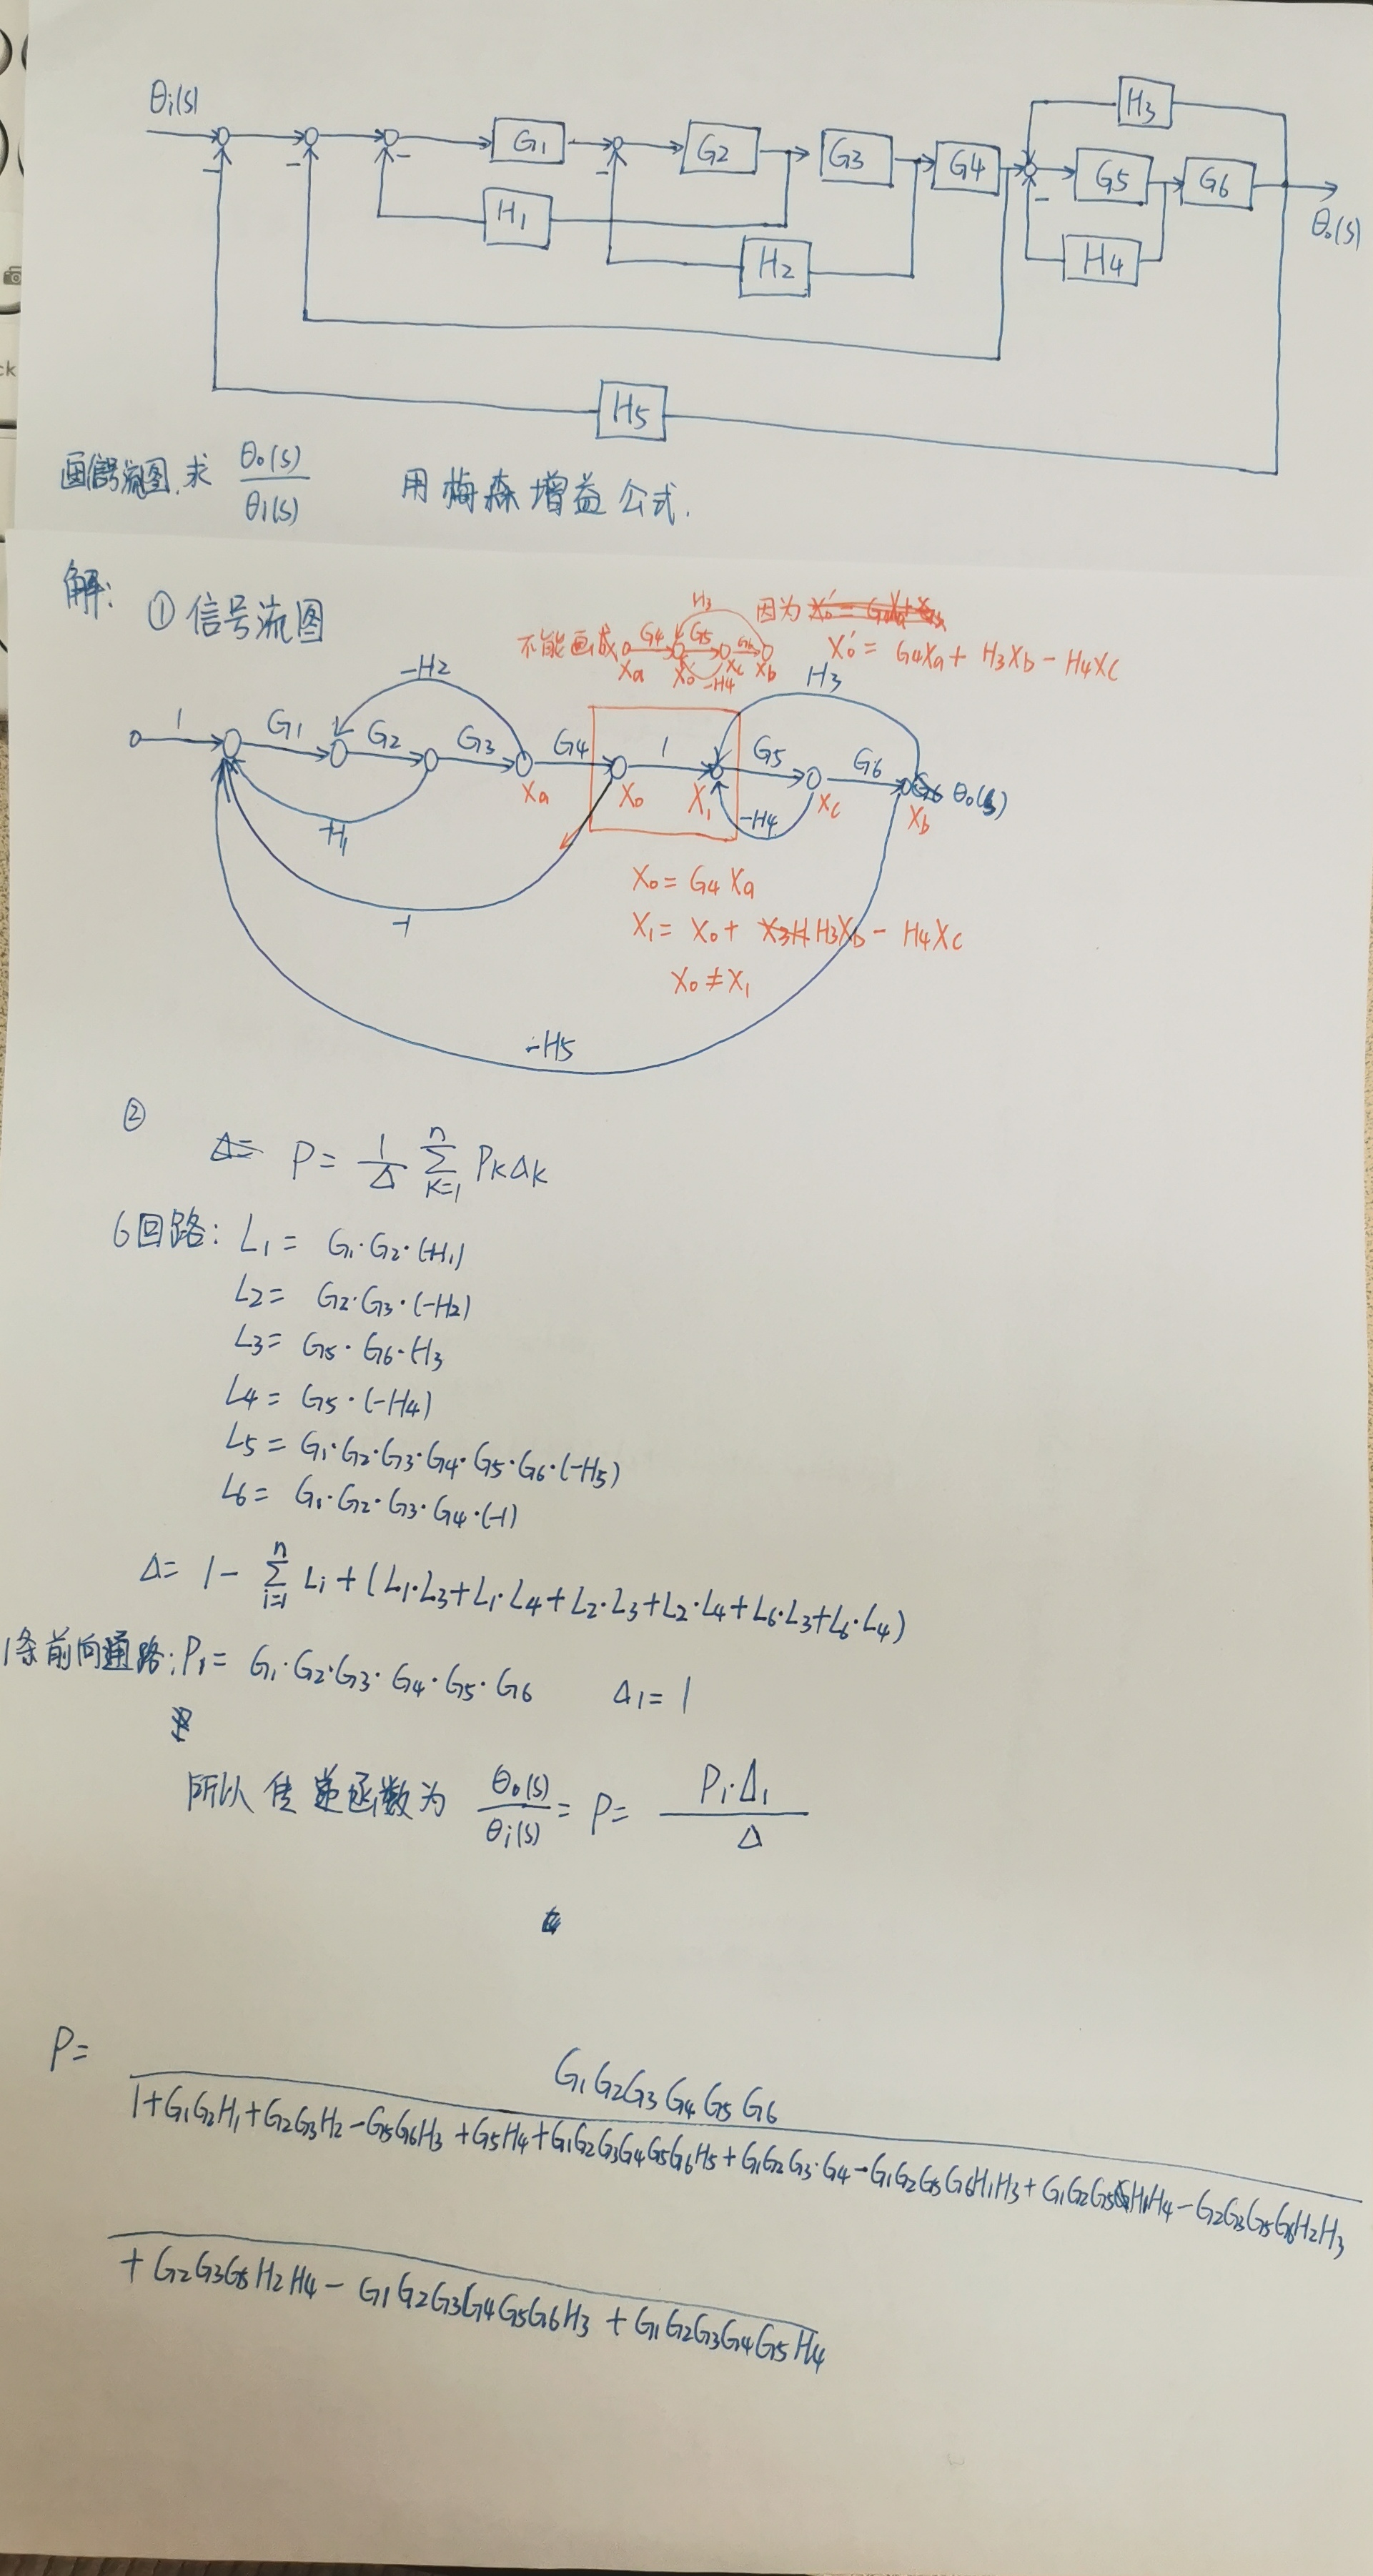 θi(s)
H3
G1 G2 G3 G4 G5 G6
- - - - -
θo(s)
H1
H2
H4
H5
画信号流图,求 θo(s)/θi(s) 用梅森增益公式.
解: ① 信号流图
不能画成 Xa G4 X0' G5 Xc G6 Xb H3 -H4 因为
X0' = G4Xa + H3Xb - H4Xc
-H2 H3
1 G1 G2 G3 G4 1 G5 G6 θo(s)
Xa X0 X1 Xc Xb
-H1 -H4
-1
X0 = G4 Xa
X1 = X0 + H3Xb - H4Xc
X0 ≠ X1
-H5
②
P = 1/Δ Σ(k=1→n) Pk Δk
6回路: L1 = G1·G2·(-H1)
L2 = G2·G3·(-H2)
L3 = G5·G6·H3
L4 = G5·(-H4)
L5 = G1·G2·G3·G4·G5·G6·(-H5)
L6 = G1·G2·G3·G4·(-1)
Δ = 1 - Σ(i=1→n) Li + (L1·L3+L1·L4+L2·L3+L2·L4+L6·L3+L6·L4)
1条前向通路: P1 = G1·G2·G3·G4·G5·G6 Δ1 = 1
所以传递函数为 θo(s)/θi(s) = P = P1·Δ1/Δ
P =
G1G2G3G4G5G6
1+G1G2H1+G2G3H2-G5G6H3+G5H4+G1G2G3G4G5G6H5+G1G2G3·G4-G1G2G5G6H1H3+G1G2G5H1H4-G2G3G5G6H2H3
+G2G3G5H2H4-G1G2G3G4G5G6H3+G1G2G3G4G5H4